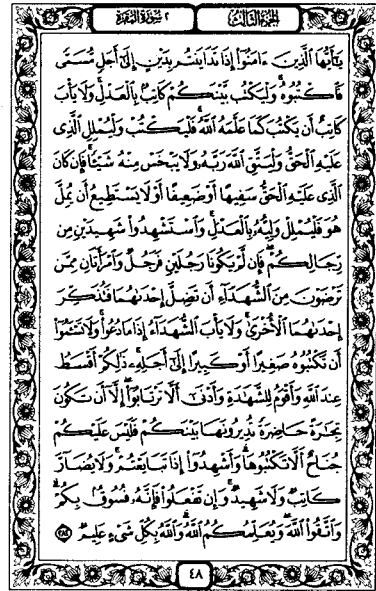 الجزء الثالث
٢ سورة البقرة
يَٰٓأَيُّهَا ٱلَّذِينَ ءَامَنُوٓا۟ إِذَا تَدَايَنتُم بِدَيْنٍ إِلَىٰٓ أَجَلٍ مُّسَمًّى
فَٱكْتُبُوهُ ۚ وَلْيَكْتُب بَّيْنَكُمْ كَاتِبٌۢ بِٱلْعَدْلِ ۚ وَلَا يَأْبَ
كَاتِبٌ أَن يَكْتُبَ كَمَا عَلَّمَهُ ٱللَّهُ ۚ فَلْيَكْتُبْ وَلْيُمْلِلِ ٱلَّذِى
عَلَيْهِ ٱلْحَقُّ وَلْيَتَّقِ ٱللَّهَ رَبَّهُۥ وَلَا يَبْخَسْ مِنْهُ شَيْـًٔا ۚ فَإِن كَانَ
ٱلَّذِى عَلَيْهِ ٱلْحَقُّ سَفِيهًا أَوْ ضَعِيفًا أَوْ لَا يَسْتَطِيعُ أَن يُمِلَّ
هُوَ فَلْيُمْلِلْ وَلِيُّهُۥ بِٱلْعَدْلِ ۚ وَٱسْتَشْهِدُوا۟ شَهِيدَيْنِ مِن
رِّجَالِكُمْ ۖ فَإِن لَّمْ يَكُونَا رَجُلَيْنِ فَرَجُلٌ وَٱمْرَأَتَانِ مِمَّن
تَرْضَوْنَ مِنَ ٱلشُّهَدَآءِ أَن تَضِلَّ إِحْدَىٰهُمَا فَتُذَكِّرَ
إِحْدَىٰهُمَا ٱلْأُخْرَىٰ ۚ وَلَا يَأْبَ ٱلشُّهَدَآءُ إِذَا مَا دُعُوا۟ ۚ وَلَا تَسْـَٔمُوٓا۟
أَن تَكْتُبُوهُ صَغِيرًا أَوْ كَبِيرًا إِلَىٰٓ أَجَلِهِۦ ۚ ذَٰلِكُمْ أَقْسَطُ
عِندَ ٱللَّهِ وَأَقْوَمُ لِلشَّهَٰدَةِ وَأَدْنَىٰٓ أَلَّا تَرْتَابُوٓا۟ ۖ إِلَّآ أَن تَكُونَ
تِجَٰرَةً حَاضِرَةً تُدِيرُونَهَا بَيْنَكُمْ فَلَيْسَ عَلَيْكُمْ
جُنَاحٌ أَلَّا تَكْتُبُوهَا ۗ وَأَشْهِدُوٓا۟ إِذَا تَبَايَعْتُمْ ۚ وَلَا يُضَآرَّ
كَاتِبٌ وَلَا شَهِيدٌ ۚ وَإِن تَفْعَلُوا۟ فَإِنَّهُۥ فُسُوقٌۢ بِكُمْ ۗ
وَٱتَّقُوا۟ ٱللَّهَ ۖ وَيُعَلِّمُكُمُ ٱللَّهُ ۗ وَٱللَّهُ بِكُلِّ شَىْءٍ عَلِيمٌ ﴿٢٨٢﴾
٤٨